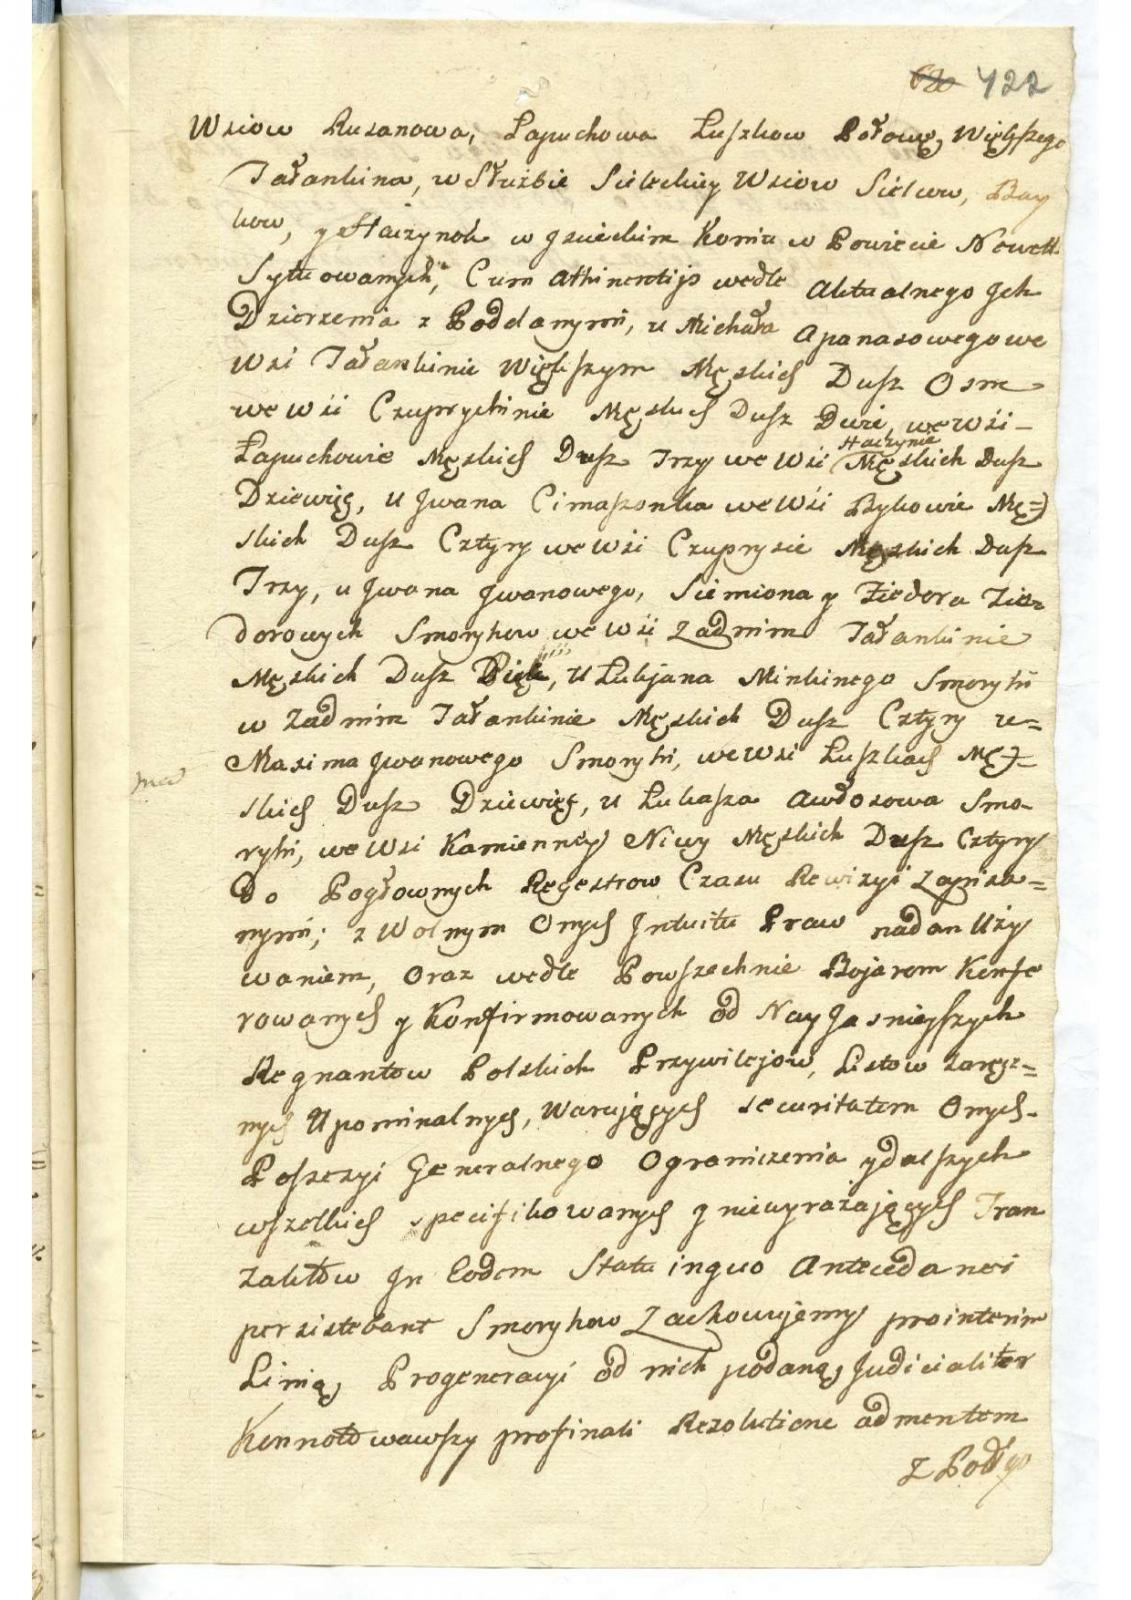 620 422
Wsiow Rusanowa, Łapuchowa Łuszkow Połowę, Więkſzego
Tałankina, w Służbie Sieleckiey Wsiow Sielców, Bay
kow, y Haczynok w gsieckim Koniu w Powiecie Nowell.
Sytuowanych, Cum Attinentijs wedle Aktualnego Jch
Dzierzenia z Poddanymi, u Michała Apanasowego we
Wsi Tałankinie Więkſzym Męskich Dusz Osm
we Wśi Czuprychinie Męskich Dusz Dwie, we Wśi
Łapuchowie Męskich Dusz Trzy we Wśi Męskich Dusz
Haczynie
Dziewięę, u Jwana Cimaszonka we Wśi Bykowie Mę=
skich Dusz Cztyry we Wśi Czuprysie Męskich Dusz
Trzy, u Jwana Jwanowego, Siemiona y Fiedora Fie=
dorowych Smorykow we Wśi Zadnim Tałankinie
Męskich Dusz Pięć, u Łukjana Minkinego Smoryki
w Zadnim Tałankinie Męskich Dusz Cztyry u=
Maxima Jwanowego Smoryki, we Wsi Łuszkach Mę=
skich Dusz Dziewięę, u Łukasza Awdosowa Smo=
ryki, we Wsi Kamienney Niwy Męskich Dusz Cztyry
Do Pogłownych Regestrow Czasu Rewizyi zapisa=
nymi; z Wolnym Onych Jntuitu Praw nadan Uży
waniem, Oraz wedle Powszechnie Bojarom Konfe
rowanych y Konfirmowanych od Nayjasnieyſzych
Regnantow Polskich Przywilejow, Listow Zaręcz=
nych Upominalnych, Warujących securitatem Onych
Poszczyi Generalnego Ograniczenia y dalszych
wszelkich specifikowanych y niewyrażających Tran
zaktów Jn Eodem Statu in quo Antecedanei
persistebant Smorykow Zachowujemy prointerim
Linią, Progeneracyi od nich podaną, Judicialiter
Konnotowawszy profinali Rezolutione admentem